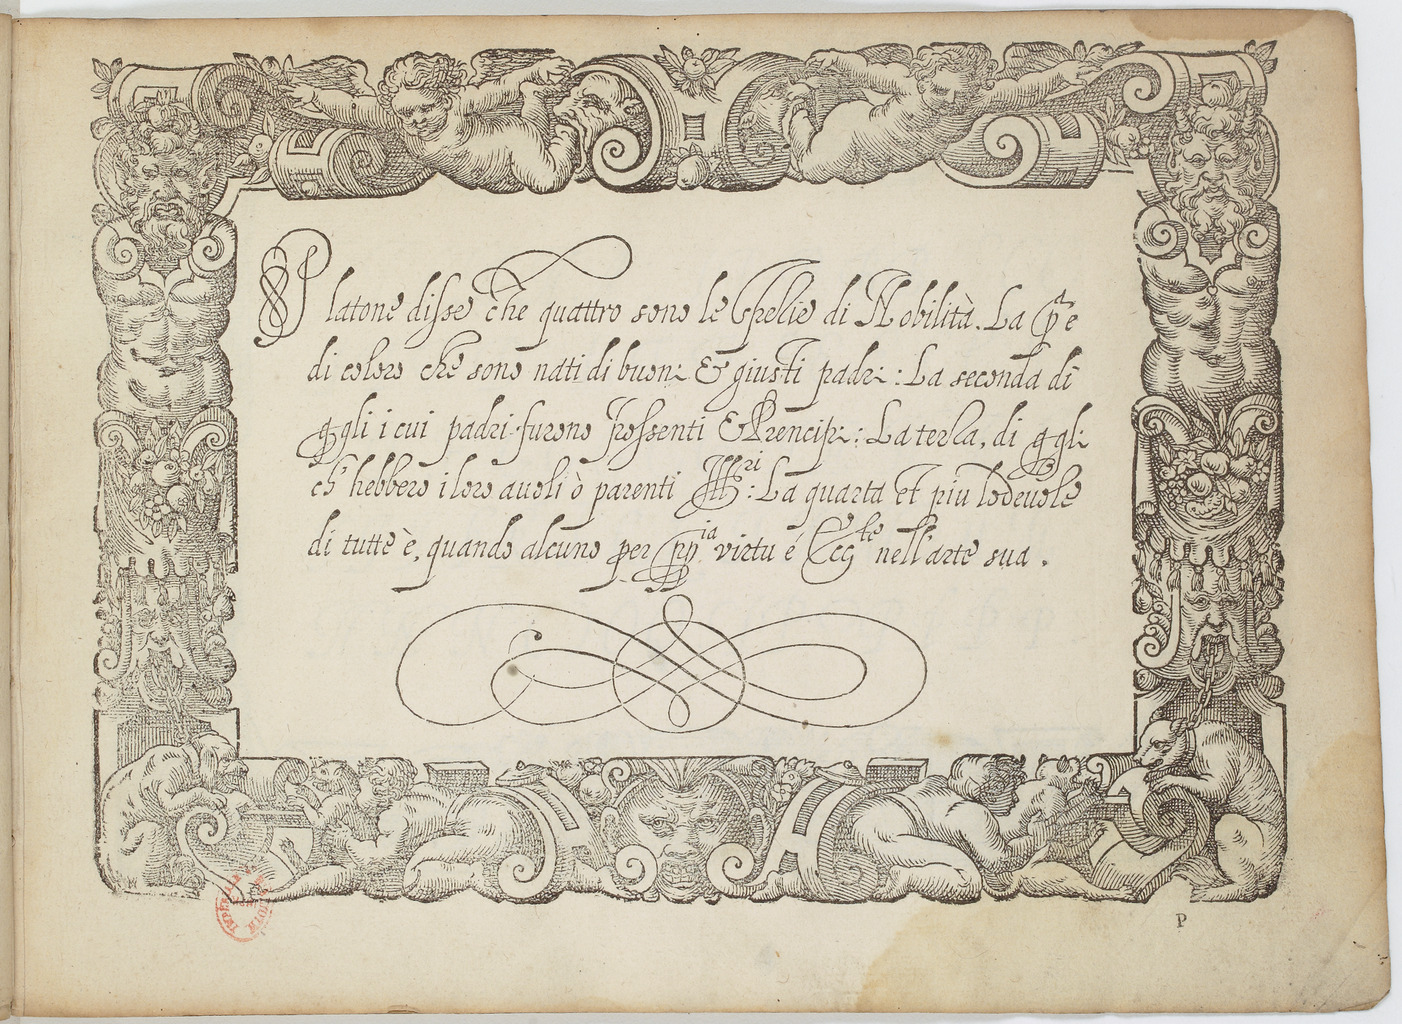 Platone disse che quattro sono le Spetie di Nobilità. La p.e
di coloro che sono nati di buoni & giusti padri : La seconda di
qgli i cui padri furono possenti & Prencipi : La terza, di qgli
ch' hebbero i loro auoli ò parenti Illri : La quarta et piu lodeuole
di tutte è, quando alcuno per ppia virtu é Eccte nell'arte sua .
P